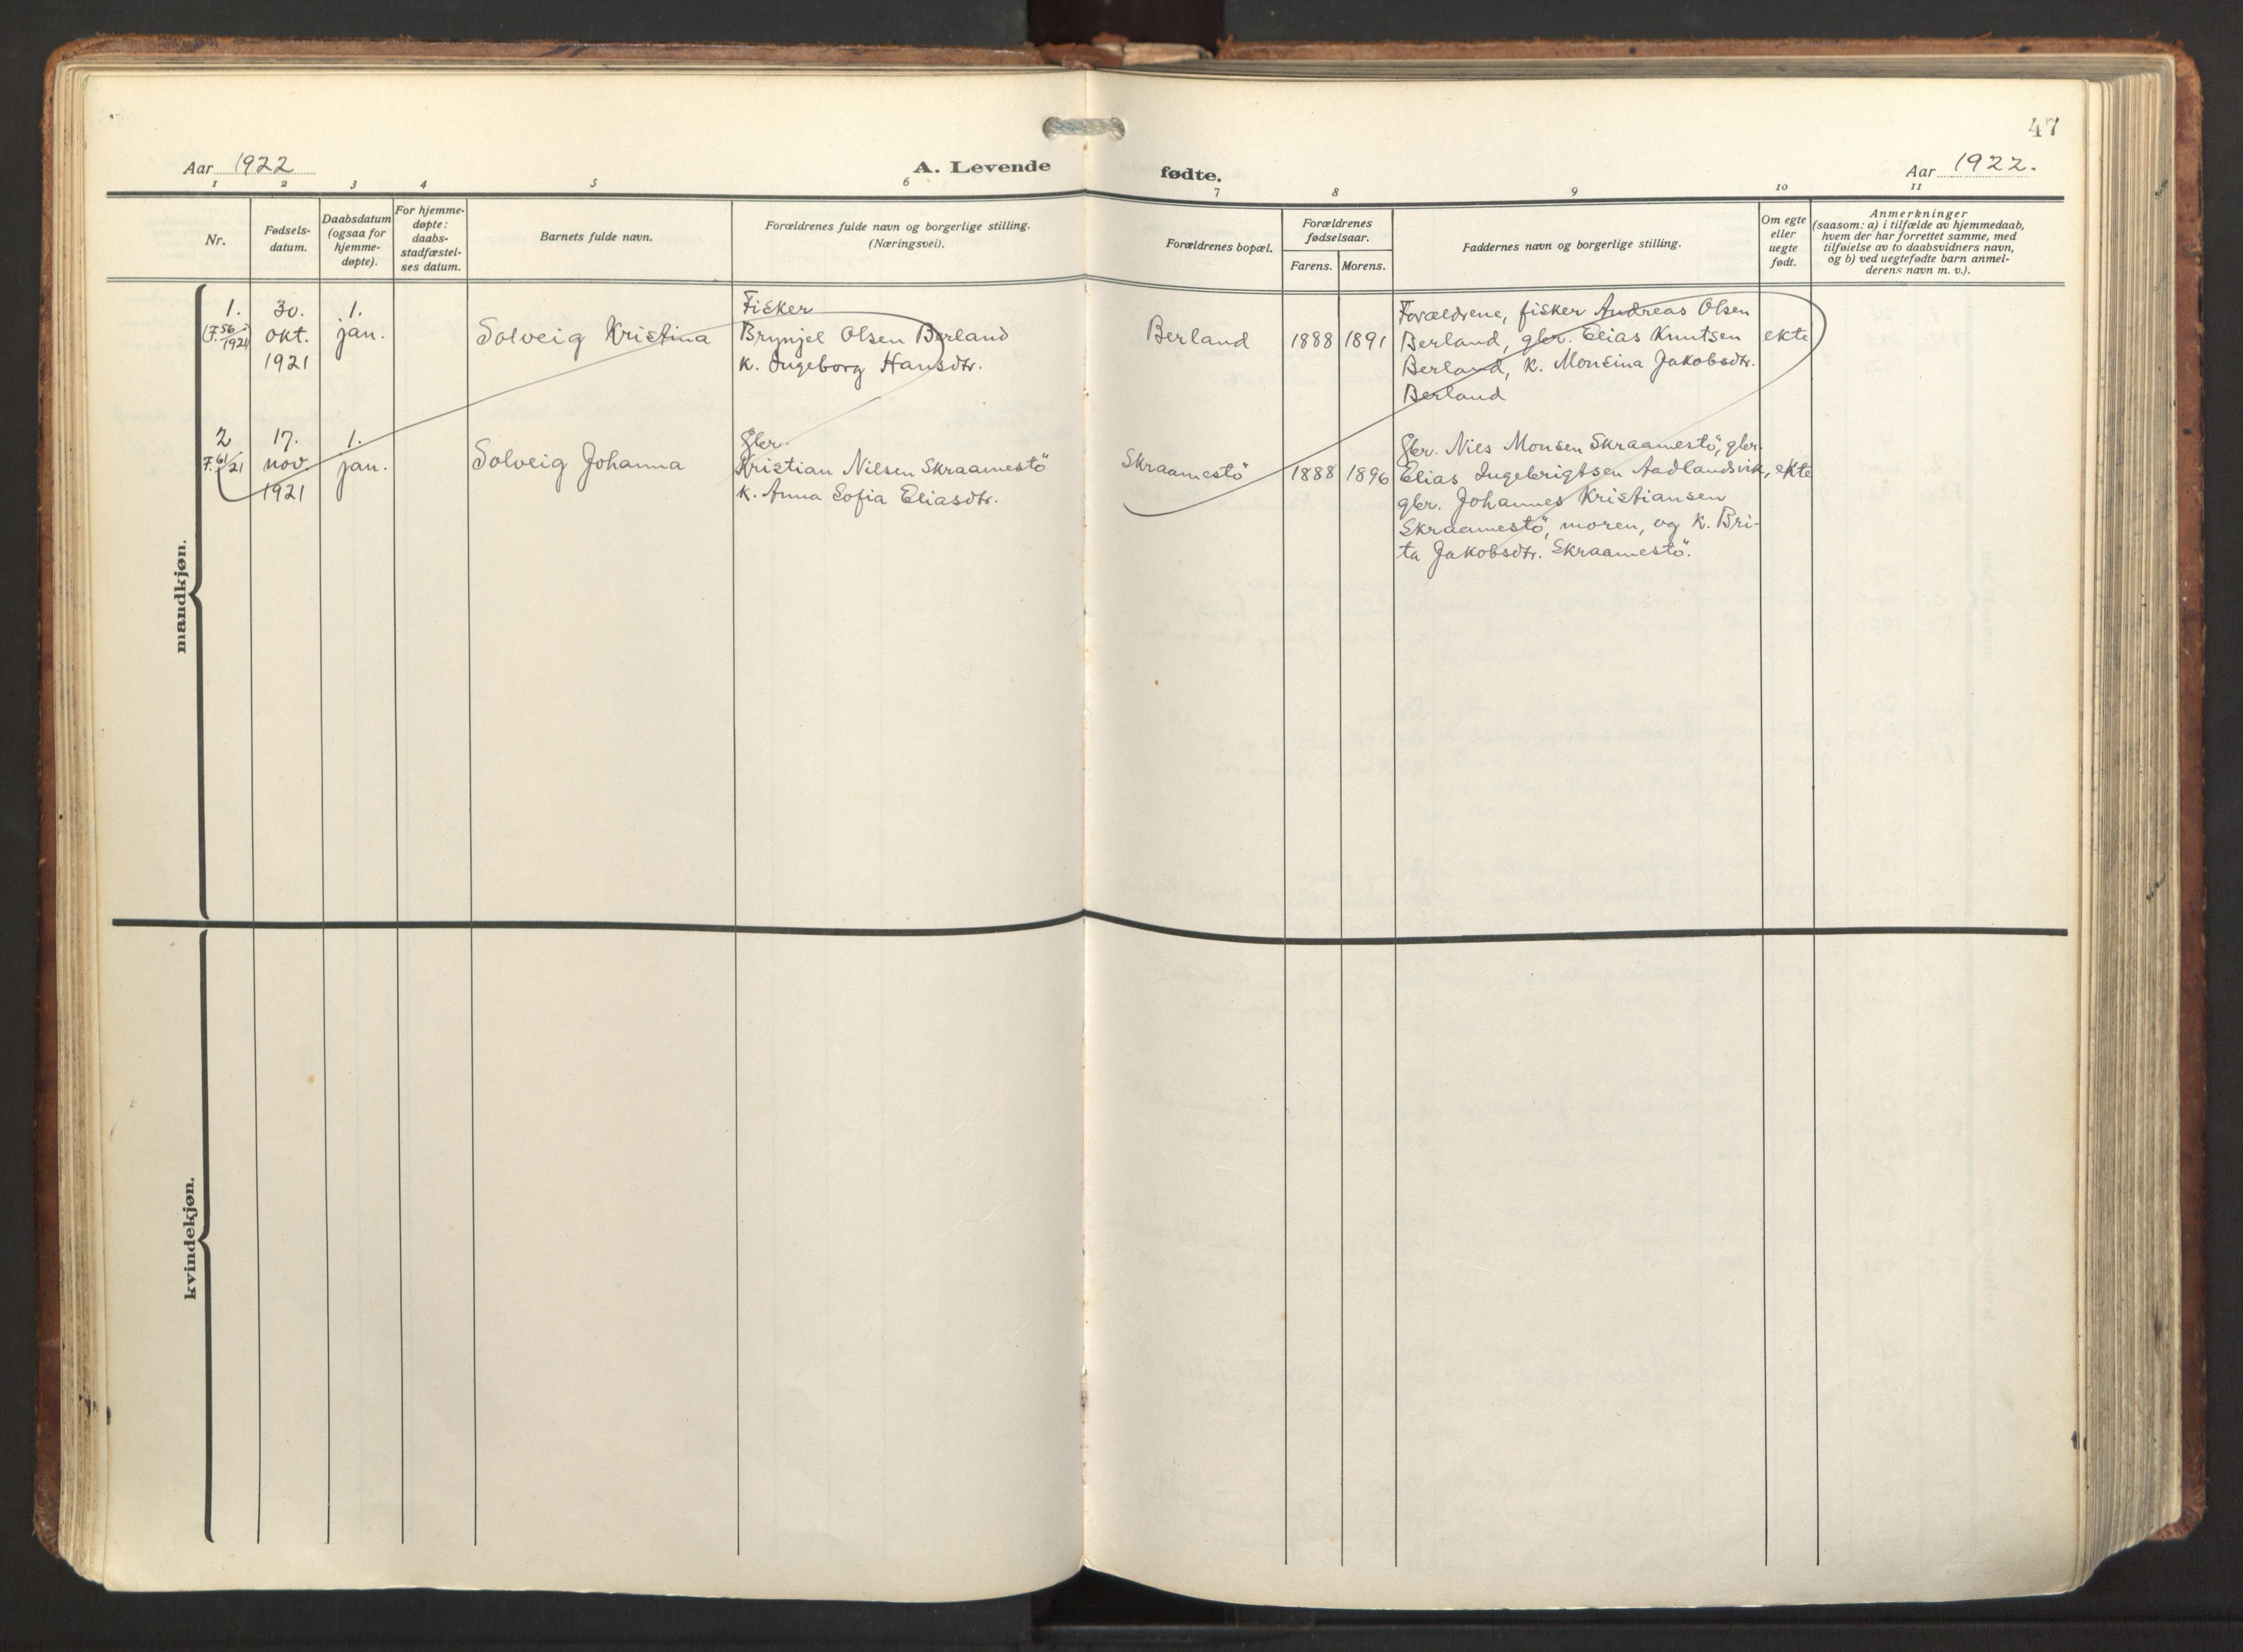 47
Aar 1922
A. Levende
fødte.
Aar 1922.
1 2 3 4 5 6 7 8 9 10 11
Nr.
Fødsels-
datum.
Daabsdatum
(ogsaa for
hjemme-
døpte).
For hjemme-
døpte:
daabs-
stadfæstel-
ses datum.
Barnets fulde navn.
Forældrenes fulde navn og borgerlige stilling.
(Næringsvei).
Forældrenes bopæl.
Forældrenes
fødselsaar.
Farens. Morens.
Faddernes navn og borgerlige stilling.
Om egte
eller
uegte
født.
Anmerkninger
(saasom: a) i tilfælde av hjemmedaab,
hvem der har forrettet samme, med
tilføielse av to daabsvidners navn,
og b) ved uegtefødte barn anmel-
derens navn m. v.).
mandkjøn.
1.
(F. 56 i
1921)
30.
okt.
1921
1.
jan.
Solveig Kristina
Fisker
Brynjel Olsen Berland
k. Ingeborg Hansdtr.
Berland
1888
1891
Forældrene, fisker Andreas Olsen
Berland, gbr. Elias Knutsen
Berland, k. Monsina Jakobsdtr.
Berland
ekte
2
F. 61/21
17.
nov
1921
1.
jan.
Solveig Johanna
Gbr.
Kristian Nilsen Skraamestö
k. Anna Sofia Eliasdtr.
Skraamestö
1888
1896
Gbr. Nils Monsen Skraamestö, gbr.
Elias Ingebrigtsen Aadlandsvik,
gbr. Johannes Kristiansen
Skraamestö, moren, og k. Bri-
ta Jakobsdtr. Skraamestö.
ekte
kvindekjøn.